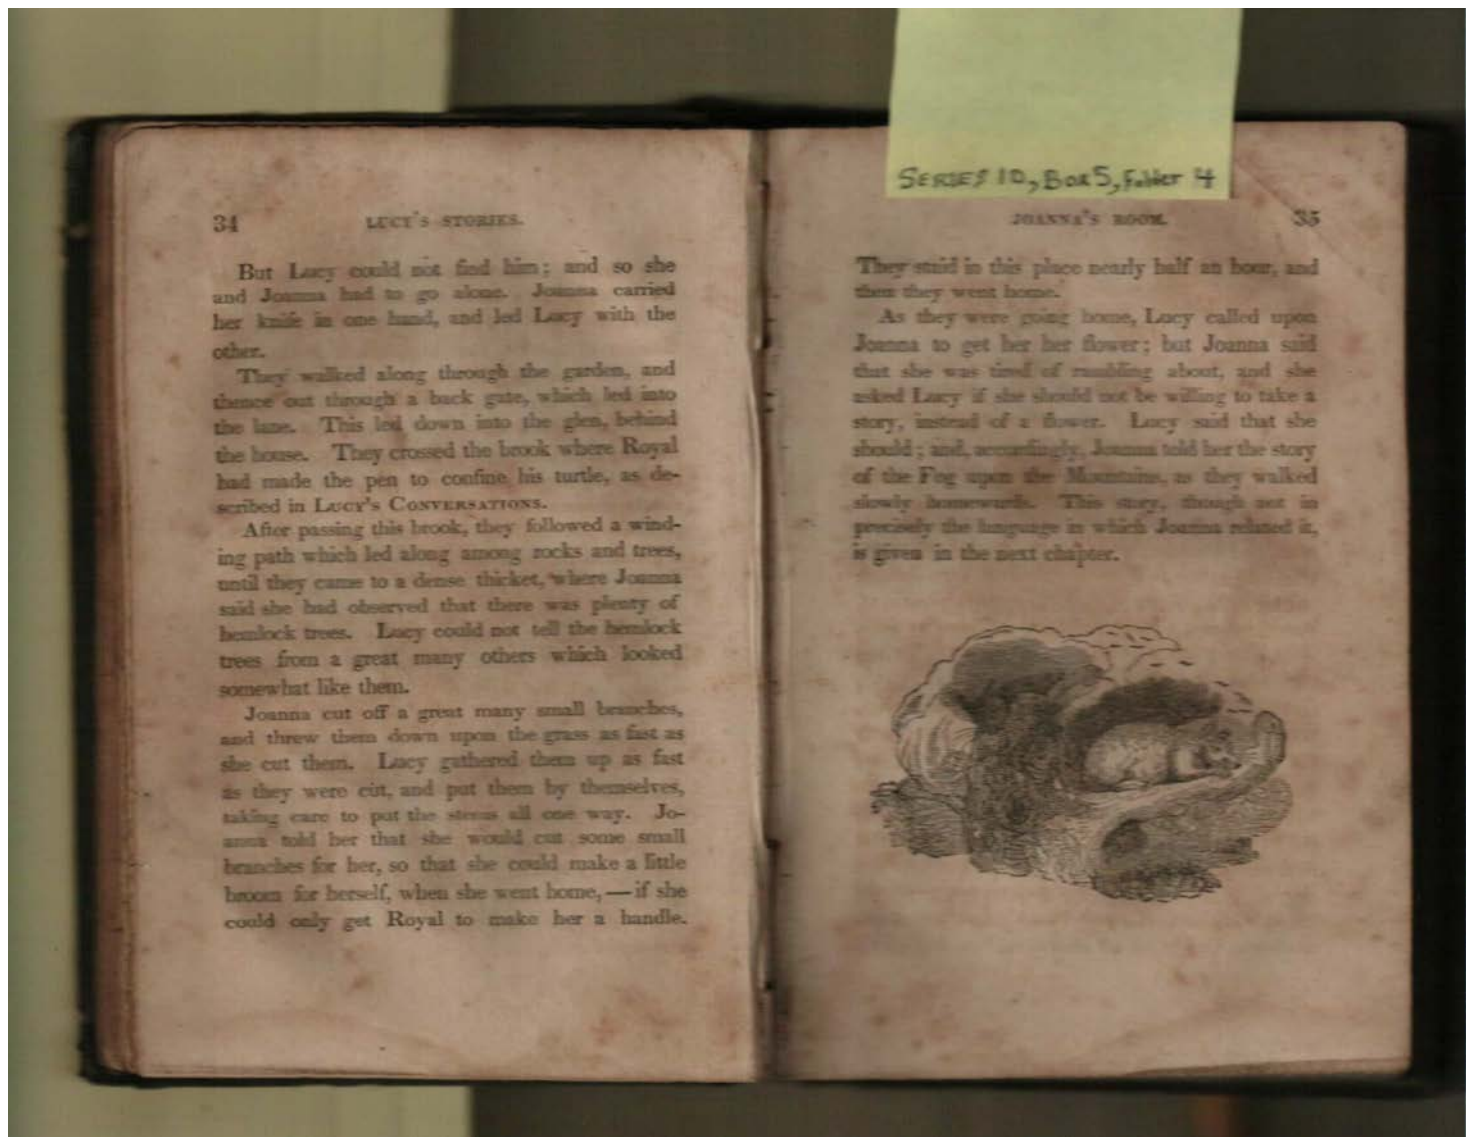 SERIES 10, Box 5, Folder 4
34 LUCY'S STORIES.
But Lucy could not find him; and so she
and Joanna had to go alone. Joanna carried
her knife in one hand, and led Lucy with the
other.
They walked along through the garden, and
thence out through a back gate, which led into
the lane. This led down into the glen, behind
the house. They crossed the brook where Royal
had made the pen to confine his turtle, as de-
scribed in LUCY'S CONVERSATIONS.
After passing this brook, they followed a wind-
ing path which led along among rocks and trees,
until they came to a dense thicket, where Joanna
said she had observed that there was plenty of
hemlock trees. Lucy could not tell the hemlock
trees from a great many others which looked
somewhat like them.
Joanna cut off a great many small branches,
and threw them down upon the grass as fast as
she cut them. Lucy gathered them up as fast
as they were cut, and put them by themselves,
taking care to put the stems all one way. Jo-
anna told her that she would cut some small
branches for her, so that she could make a little
broom for herself, when she went home,—if she
could only get Royal to make her a handle.
JOANNA'S ROOM. 35
They staid in this place nearly half an hour, and
then they went home.
As they were going home, Lucy called upon
Joanna to get her her flower; but Joanna said
that she was tired of rambling about, and she
asked Lucy if she should not be willing to take a
story, instead of a flower. Lucy said that she
should; and, accordingly, Joanna told her the story
of the Fog upon the Mountains, as they walked
slowly homewards. This story, though not in
precisely the language in which Joanna related it,
is given in the next chapter.